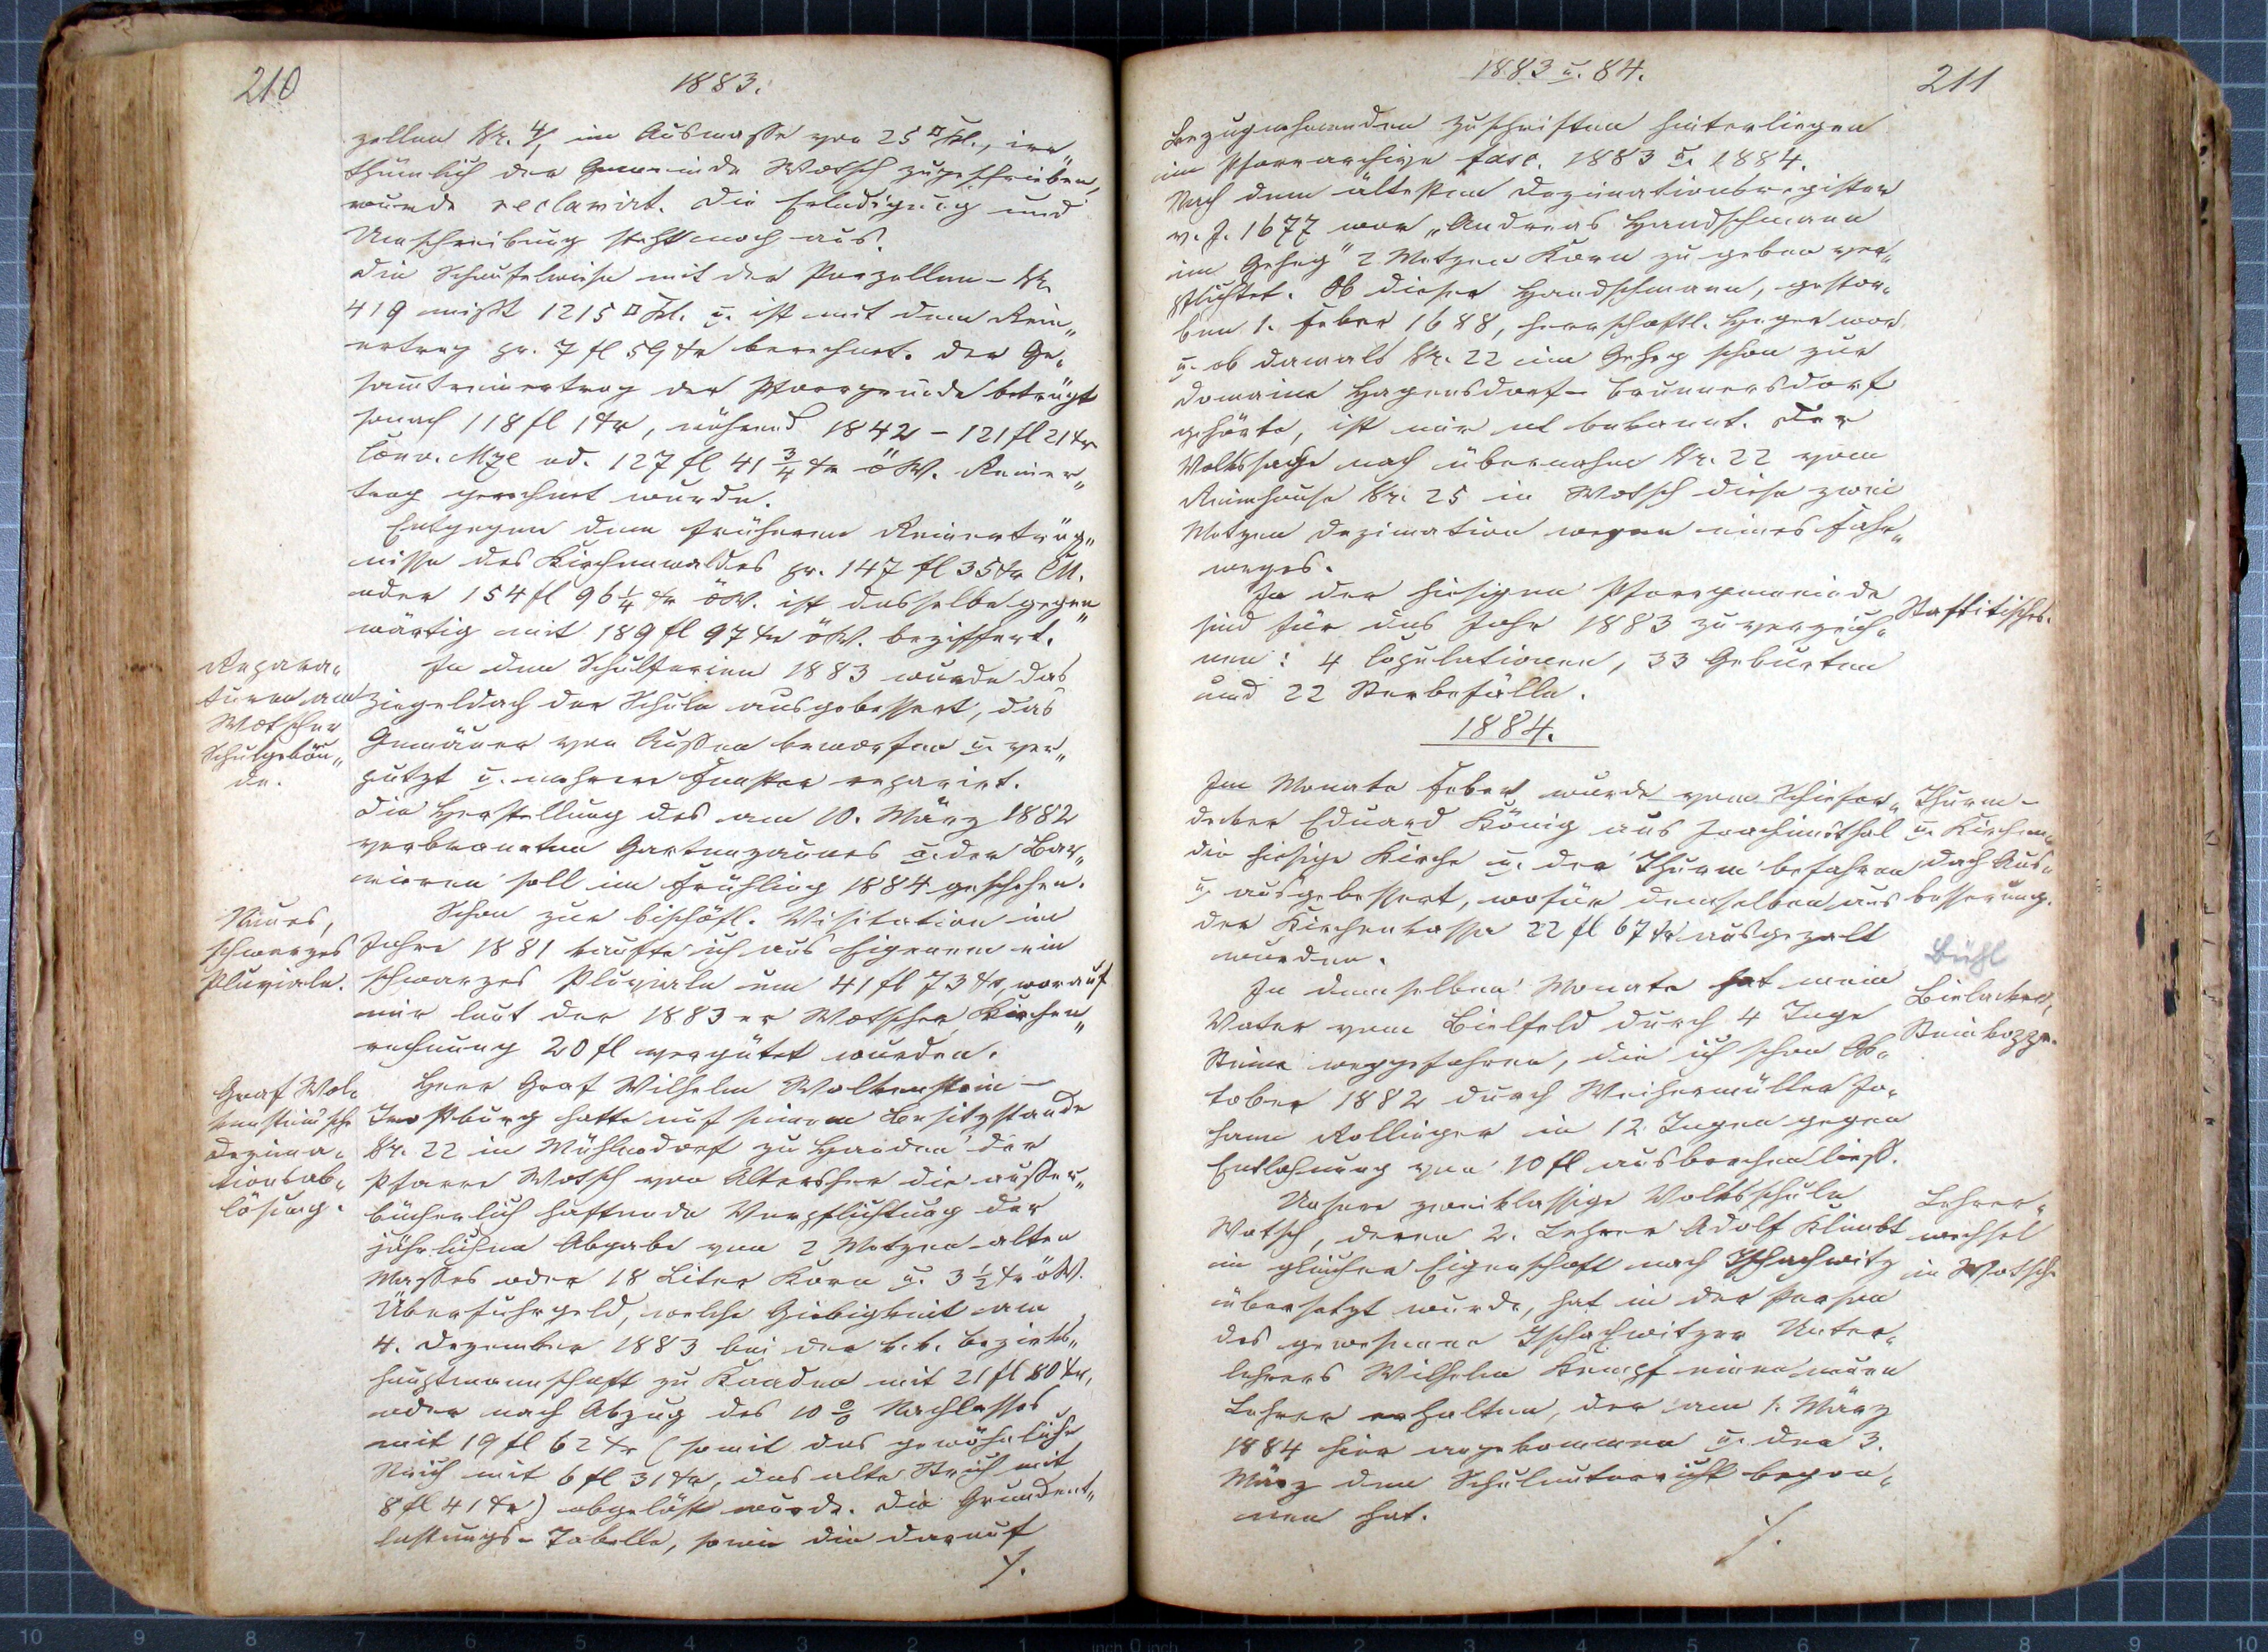 210
1883.
zellen Nr. 4, im Ausmasse von 25 □Kl., irr„
thümlich der Gemeinde Wotsch zugeschrieben,
wurde reclamirt. Die Erledigung und
Umschreibung steht noch aus.
Die Schaufelwiese mit der Parzellen-Nr.
419 mißt 1215 □Kl. u. ist mit dem Rein„
ertrag pr. 7 fl 59 kr berechnet. Der Ge„
sammtreinertrag der Pfarrgründe beträgt
sonach 118 fl 1 kr, während 1842 - 121 fl 21 kr
Conv. Mze od. 127 fl 41 3/4 kr öW. Reiner„
trag gerechnet wurde.
Entgegen dem früheren Reinerträg„
nisse des Kirchenwaldes pr. 147 fl 35 kr CM.
oder 154 fl 96 1/4 kr öW. ist dasselbe gegen„
wärtig mit 189 fl 97 kr öW. beziffert.
Repara„
turen am
Wotscher
Schulgebäu„
de.
In den Schulferien 1883 wurde das
Ziegeldach der Schule ausgebessert, das
Gemäuer von Aussen beworfen u. ver„
putzt u. mehrere Fenster reparirt.
Die Herstellung des am 10. März 1882
verbrannten Gartenzaunes u. der Bar„
rieren soll im Frühling 1884 geschehen.
Neues,
schwarzes
Pluviale.
Schon zur bischöfl. Visitation im
Jahre 1881 kaufte ich aus Eigenem ein
schwarzes Pluviale um 41 fl 73 kr, worauf
mir laut der 1883er Wotscher Kirchen„
rechnung 20 fl vergütet wurden.
Graf Wol„
kenstein'sche
Dezima„
tionsab„
lösung.
Herr Graf Wilhelm Wolkenstein-
Trostburg hatte auf seinem Besitzstande
Nr. 22 in Mühlendorf zu Handen der
Pfarre Wotsch von Altersher die ausser„
bücherlich haftende Verpflichtung der
jährlichen Abgabe von 2 Metzen alten
Masses oder 18 Liter Korn u. 3 1/2 kr öW.
Überfuhrgeld, welche Giebigkeit am
4. Dezember 1883 bei der k. k. Bezirks„
hauptmannschaft zu Kaaden mit 21 fl 80 kr,
oder nach Abzug des 10 % Nachlasses
mit 19 fl 62 kr (somit das gewöhnliche
Strich mit 6 fl 31 kr, das alte Strich mit
8 fl 41 kr) abgelöst wurde. Die Grundent„
lastungs-Tabelle, sowie die darauf
/.
1883 u. 84.
211
bezugnehmenden Zuschriften hinterliegen
im Pfarrarchive fasc. 1883 u. 1884.
Nach dem ältesten Dezimationsregister
v. J. 1677 war „Andreas Handschmann
im Geheg" 2 Metzen Korn zu geben ver„
pflichtet. Ob dieser Handschmann, gestor„
ben 1. Feber 1688, herrschaftl. Heger war
u. ob damals Nr. 22 im Geheg schon zur
Domaine Hagensdorf-Brunnersdorf
gehörte, ist mir nt bekannt. Der
Volkssage nach übernahm Nr. 22 vom
Nr. 25 in Wotsch diese zwei
Metzen Dezimation wegen eines Fahr„
weges.
In der hiesigen Pfarrgemeinde
sind für das Jahr 1883 zu verzeich„
nen: 4 Copulationen, 33 Geburten
und 22 Sterbefälle.
Statistisches.
1884.
Im Monate Feber wurde vom Schiefer„
decker Eduard König aus Joachimsthal
die hiesige Kirche u. der Thurm befahren
u. ausgebessert, wofür demselben aus
der Kirchenkassa 22 fl 67 kr ausgezalt
wurden.
Thurm-
u. Kirchen„
dach Aus„
besserung.
In demselben Monate hat mein
Vater vom Bielfeld durch 4 Tage
Steine weggefahren, die ich schon Ok„
tober 1882 durch Weihermüller Jo„
hann Rollinger in 12 Tagen gegen
Entlohnung von 10 fl ausbrechen liess.
Bühl
Bielacker,
Unsere zweiklassige Volksschule
Wotsch, deren 2. Lehrer Adolf Klimbt
in gleicher Eigenschaft nach Tschachwitz
übersetzt wurde, hat in der Person
des gewesenen Tschachwitzer Unter„
lehrers Wilhelm Kempf einen neuen
Lehrer erhalten, der am 1. März
1884 hier angekommen u. den 3.
März den Schulunterricht begon„
nen hat.
Lehrer„
wechsel
in Wotsch.
/.